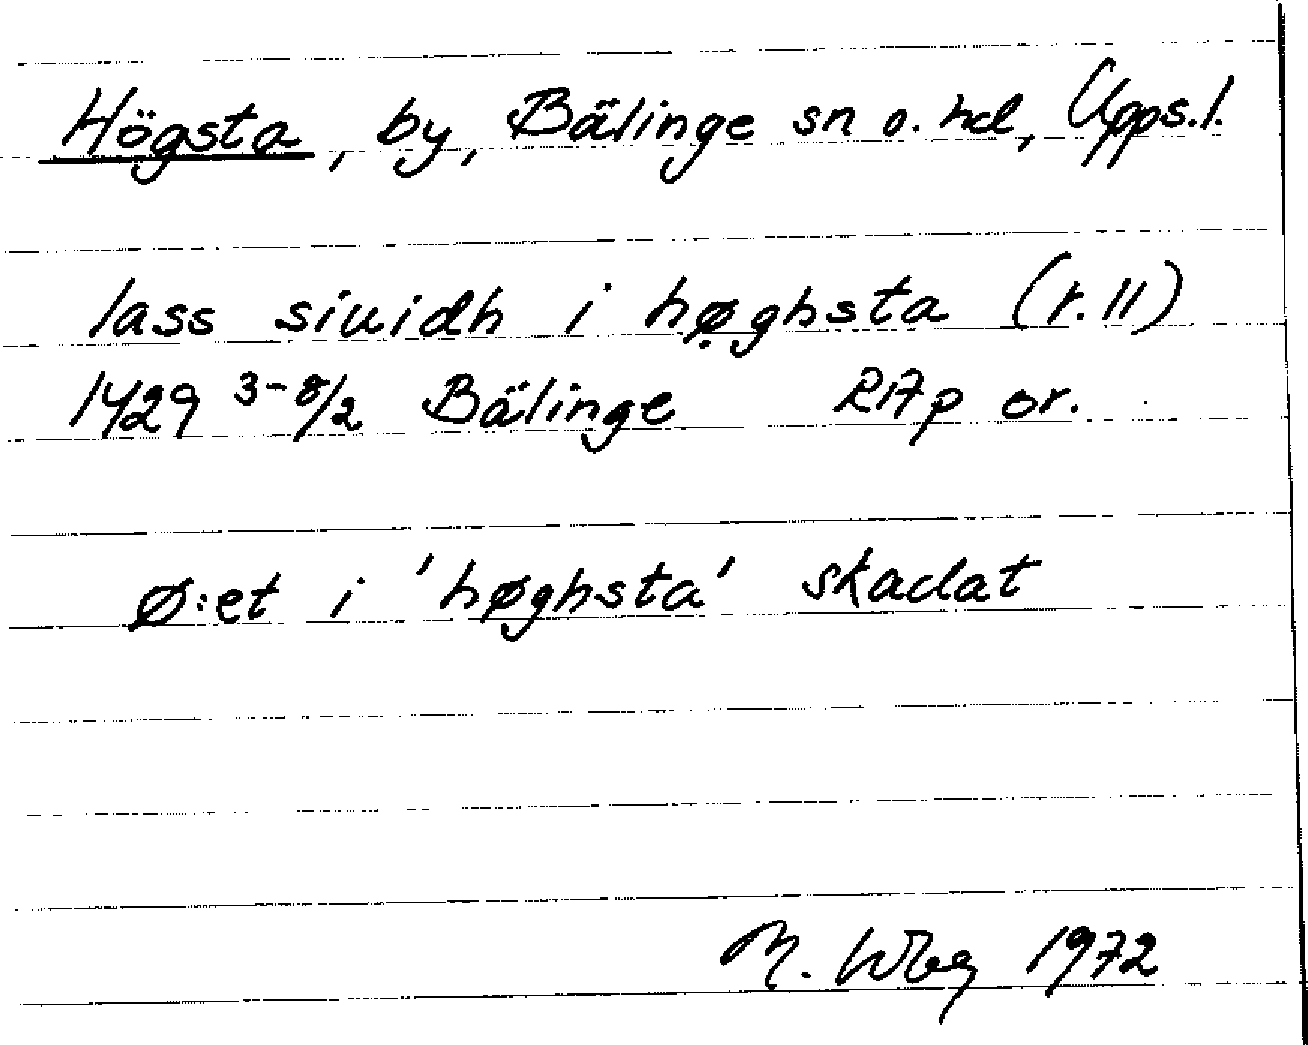 Högsta, by, Bälinge sn o. hd, Upps.l.
lass siuidh i hø̣ghsta (r.11)
1429 3-8/2 Bälinge RAp or.
Ø:et i 'høghsta' skadat
M. Wbg 1972